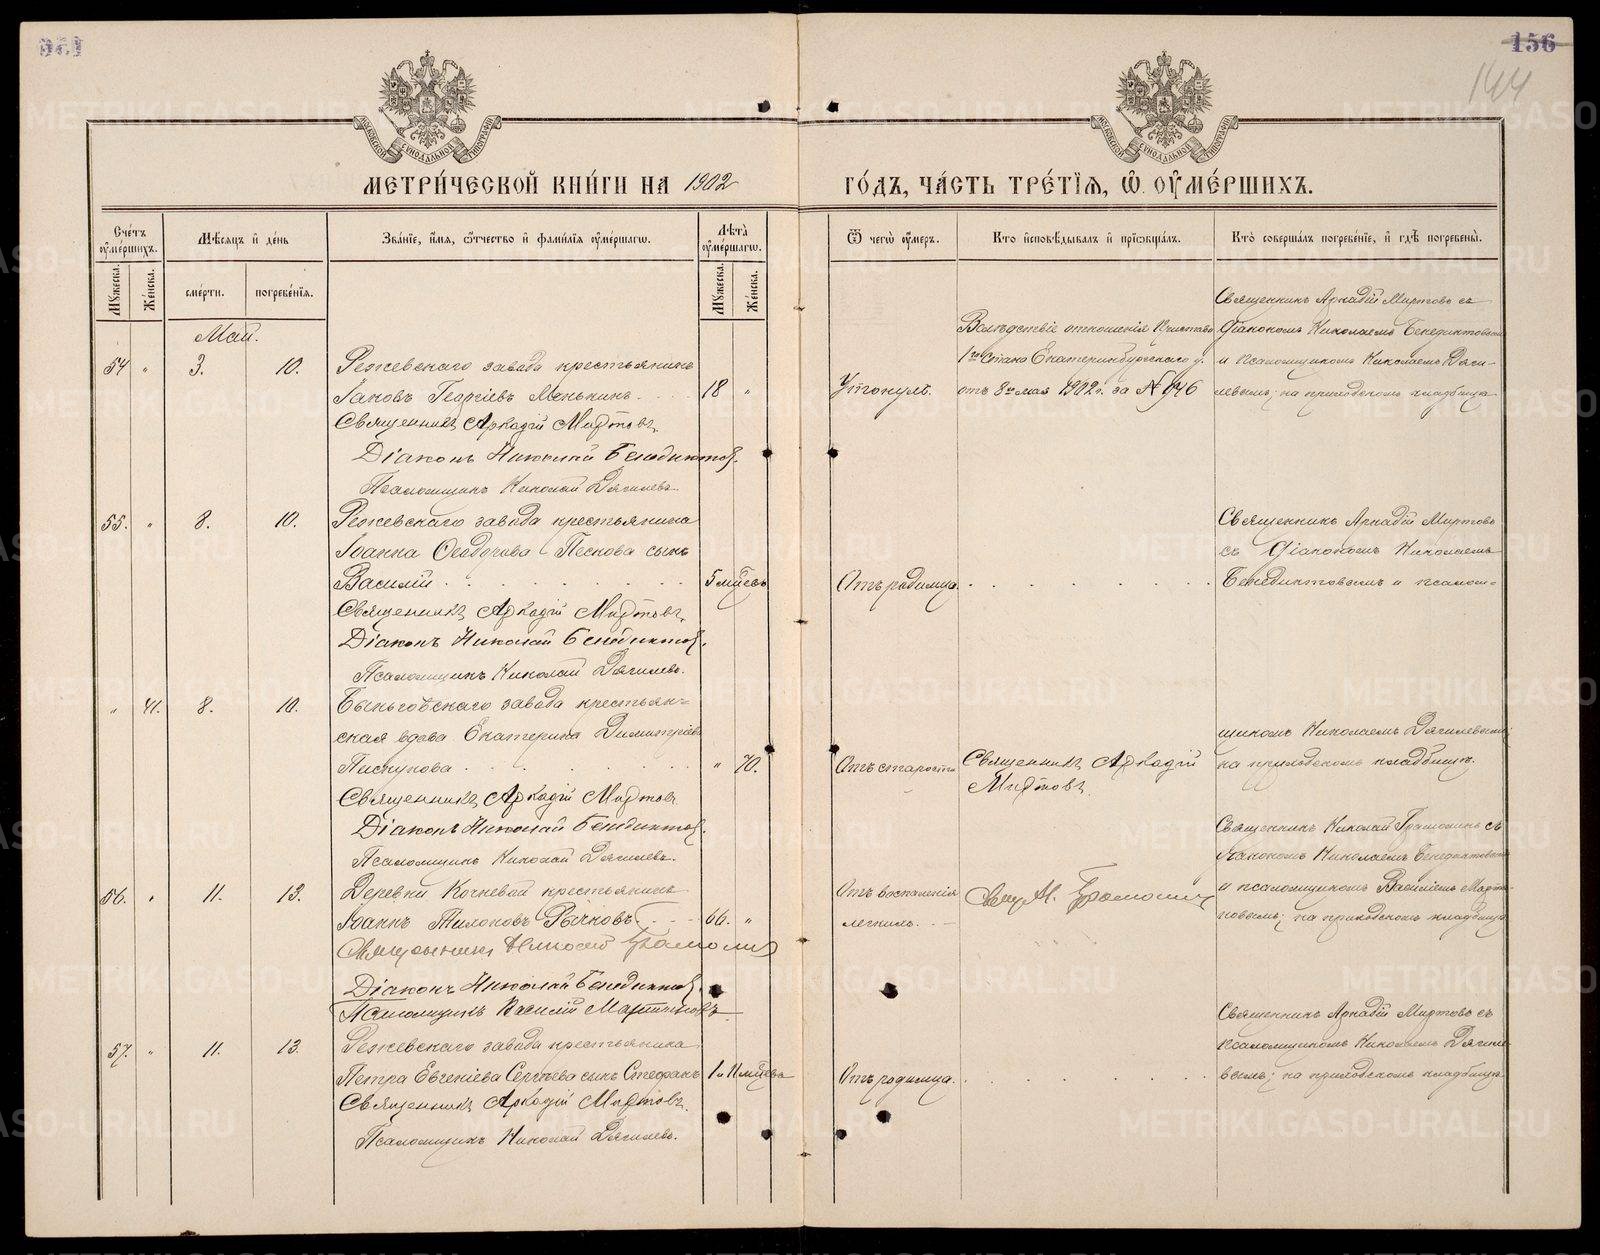 156
144
МОСКОВСКОЙ СѴНОДАЛЬНОЙ ТИПОГРАФІИ
МОСКОВСКОЙ СѴНОДАЛЬНОЙ ТИПОГРАФІИ
МЕТРИ́ЧЕСКОЙ КНИ́ГИ НА 1902
ГО́ДЪ, ЧА́СТЬ ТРЕ́ТЇѦ, Ѡ҆ ОУ҆МЕ́РШИХЪ.
Сче́тъ оу҆ме́ршихъ.
Мѣ́сѧцъ и҆ де́нь
Зва́нїе, и҆́мѧ, ѻ҆́тчество и҆ фами́лїѧ оу҆ме́ршагѡ.
Лѣ́та оу҆ме́ршагѡ.
Ѿ чегѡ̀ оу҆́меръ.
Кто̀ и҆сповѣ́дывалъ и҆ прїѡбща́лъ.
Кто̀ соверша́лъ погребе́нїе, и҆ гдѣ̀ погребены̀.
Мꙋ́жеска.
Же́нска.
сме́рти.
погребе́нїѧ.
Мꙋ́жеска.
Же́нска.
Май.
54 " 3. 10. Режевскаго завода крестьянинъ
Іаковъ Георгіевъ Менькинъ . . . 18 "
Священникъ Аркадій Миртовъ.
Діаконъ Николай Бенедиктов.
Псаломщикъ Николай Дягилевъ.
Утонулъ.
Вслѣдствіе отношенія Пристава
1го Стана Екатеринбургскаго у.
отъ 8го мая 1902 г. за № 946
Священникъ Аркадій Миртовъ съ
діакономъ Николаемъ Бенедиктовым
и псаломщикомъ Николаемъ Дяги-
левымъ; на приходскомъ кладбище
55. " 8. 10. Режевскаго завода крестьянина
Іоанна Ѳеодорова Пескова сынъ
Василій . . . . . . . . 5 мцевъ
Священникъ Аркадій Миртовъ.
Діаконъ Николай Бенедиктов.
Псаломщикъ Николай Дягилевъ.
Отъ родимца. . . . . . .
Священникъ Аркадій Миртовъ
съ діакономъ Николаемъ
Бенедиктовымъ и псалом-
" 41. 8. 10. Быньговскаго завода крестьян-
ская вдова Екатерина Димитріева
Пискунова . . . . . . . " 70.
Священникъ Аркадій Миртовъ
Діаконъ Николай Бенедиктов.
Псаломщикъ Николай Дягилевъ.
Отъ старости
Священникъ Аркадій
Миртовъ.
щикомъ Николаемъ Дягилевымъ;
на приходскомъ кладбищѣ.
56. " 11. 13. Деревни Кочневой крестьянинъ
Іоаннъ Рычковъ . . . 66. "
Священникъ Николай Грамолинъ
Діаконъ Николай Бенедиктов.
Псаломщикъ Василій Мартыновъ
Отъ воспаленія
легкихъ.
Свящ. Н. Грамолинъ
Священникъ Николай Грамолинъ съ
діакономъ Николаемъ Бенедиктовым
и псаломщикомъ Василіемъ Марты-
новымъ; на приходскомъ кладбищѣ
57. " 11. 13. Режевскаго завода крестьянина
Петра Евгеніева Сергѣева сынъ Стефанъ 1 и 11 мцевъ
Священникъ Аркадій Миртовъ.
Псаломщикъ Николай Дягилевъ.
Отъ родимца. . . . . . .
Священникъ Аркадій Миртовъ съ
псаломщикомъ Николаемъ Дягиле-
вымъ; на приходскомъ кладбищѣ
METRIKI.GASO-URAL.RU